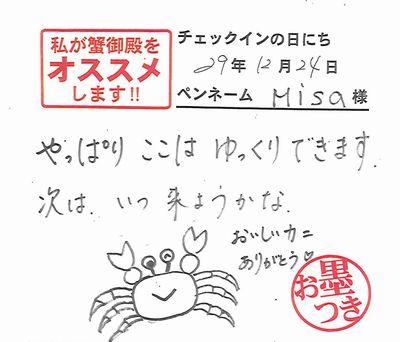 私が蟹御殿を
オススメ
します!!
チェックインの日にち
29年12月24日
ペンネーム Misa様
やっぱり ここは ゆっくりできます.
次は、いつ 来ようかな.
おいしいカニ
ありがとう♡
お墨つき